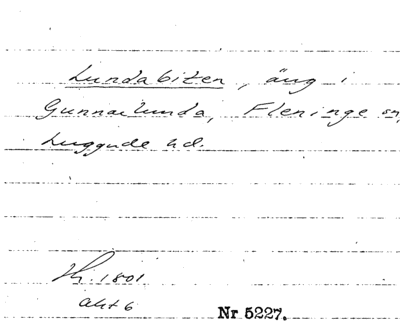 Lundabiten, äng i
Gunnarlunda, Fleninge sn,
Luggude hd.
1801
akt 6
Nr 5227.